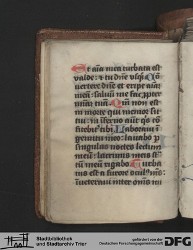 Et aīa mea turbata est
valde: et tu dn̄e usq̄quo Con
uertere dn̄e et eripe aīam
meā: saluū me fac ꝓpter
miām tuā Qm̄ non est
in morte qui memor sit
tui: in īferno aūt q̄s cō
fitebit̄ tibi Laboraui ī
gemitu meo: lauabo ꝑ
singulas noctes lectum
meū: lacrimis meis st̄
tū meū rigabo Turba
tus est a furore oculꝰ meꝰ:
inueteraui inter om̄s ini
Stadtbibliothek
und Stadtarchiv Trier
gefördert von der
Deutschen Forschungsgemeinschaft
DFG